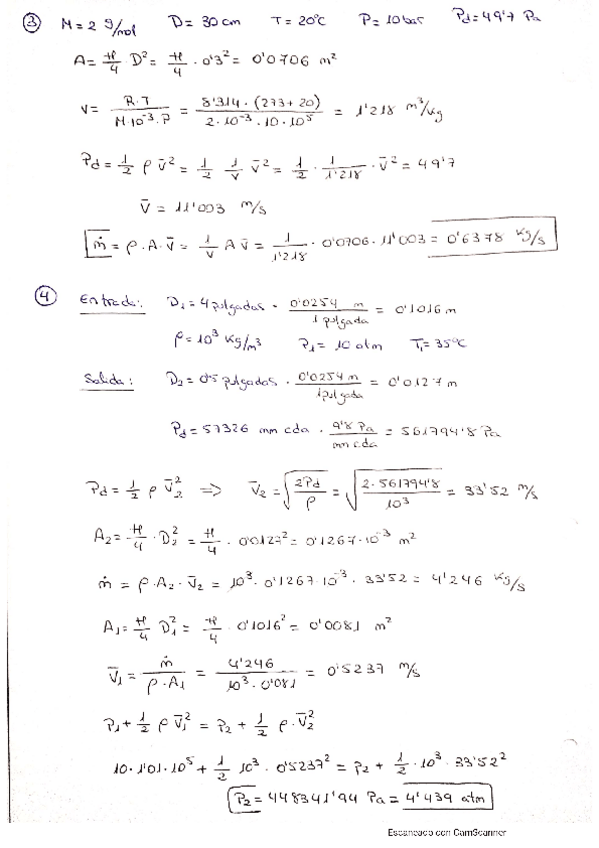 ③ M = 2 g/mol D = 30 cm T = 20°C P = 10 bar Pd = 49'7 Pa
A = π/4 · D² = π/4 · 0'3² = 0'0706 m²
v = R·T / M·10⁻³·P = 8'314 · (273+20) / 2·10⁻³·10·10⁵ = 1'218 m³/kg
Pd = 1/2 ρ v̄² = 1/2 1/v v̄² = 1/2 · 1/1'218 · v̄² = 49'7
v̄ = 11'003 m/s
ṁ = ρ·A·v̄ = 1/v A v̄ = 1/1'218 · 0'0706 · 11'003 = 0'6378 kg/s
④ Entrada: D₁ = 4 pulgadas · 0'0254 m / 1 pulgada = 0'1016 m
ρ = 10³ kg/m³ P₁ = 10 atm T₁ = 35°C
Salida: D₂ = 0'5 pulgadas · 0'0254 m / 1 pulgada = 0'0127 m
Pd = 57326 mm cda · 9'8 Pa / mm cda = 561794'8 Pa
Pd = 1/2 ρ v̄₂² => v̄₂ = √(2Pd / ρ) = √(2·561794'8 / 10³) = 33'52 m/s
A₂ = π/4 · D₂² = π/4 · 0'0127² = 0'1267·10⁻³ m²
ṁ = ρ·A₂·v̄₂ = 10³ · 0'1267·10⁻³ · 33'52 = 4'246 kg/s
A₁ = π/4 D₁² = π/4 · 0'1016² = 0'0081 m²
v̄₁ = ṁ / ρ·A₁ = 4'246 / 10³·0'081 = 0'5237 m/s
P₁ + 1/2 ρ v̄₁² = P₂ + 1/2 ρ·v̄₂²
10·1'01·10⁵ + 1/2 10³ · 0'5237² = P₂ + 1/2 · 10³ · 33'52²
P₂ = 448341'94 Pa = 4'439 atm
Escaneado con CamScanner